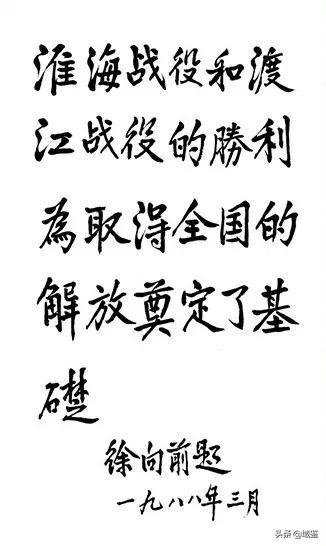 淮海战役和渡
江战役的勝利
為取得全国的
解放奠定了基
礎
徐向前题
一九八八年三月
头条@域鉴